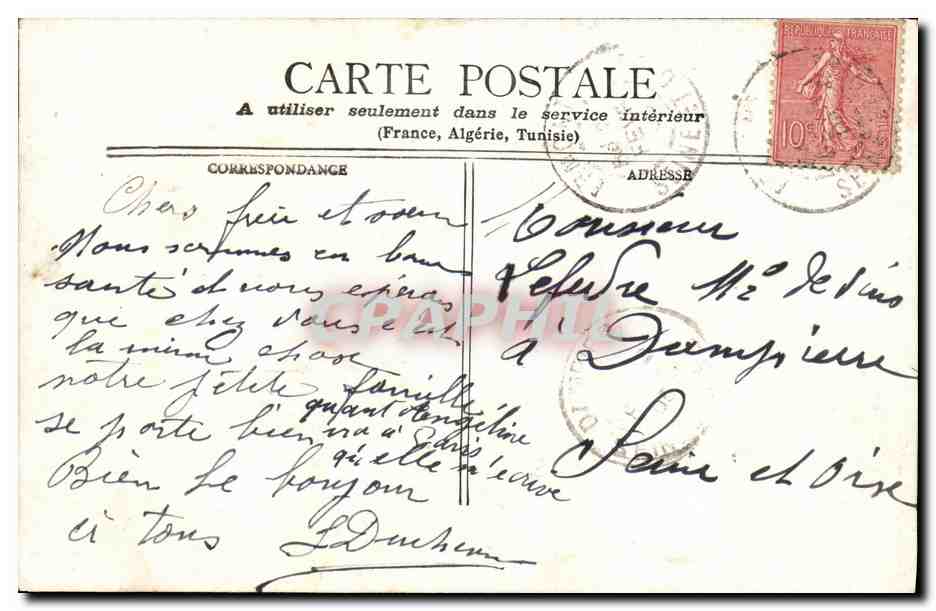 CARTE POSTALE
A utiliser seulement dans le service intérieur
(France, Algérie, Tunisie)
RÉPUBLIQUE FRANÇAISE
10c
CORRESPONDANCE
ADRESSE
Chers frère et soeur
Nous sommes en bonne
santé et nous espérons
que chez vous c'est
la même chose
notre petite famille
se porte bien
quant Angéline
ira à Paris
qu'elle m'écrive
Bien le bonjour
à tous
Monsieur
Lefevre Md de vins
à Dampierre
Seine et Oise
CPAPHIL